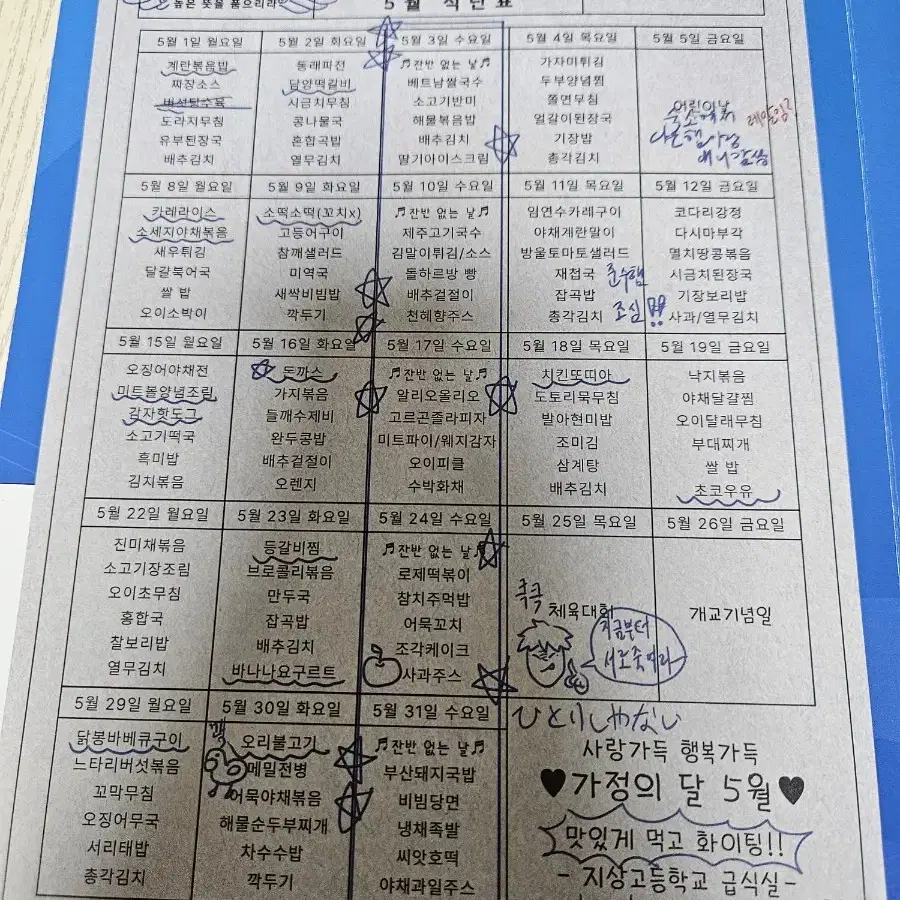 높은 뜻을 품으리라
5월 식단표
5월 1일 월요일
계란볶음밥
짜장소스
버섯탕수육
도라지무침
유부된장국
배추김치
5월 2일 화요일
동래파전
담양떡갈비
시금치무침
콩나물국
혼합곡밥
열무김치
5월 3일 수요일
♬잔반 없는 날♬
베트남쌀국수
소고기반미
해물볶음밥
배추김치
딸기아이스크림
5월 4일 목요일
가자미튀김
두부양념찜
쫄면무침
얼갈이된장국
기장밥
총각김치
5월 5일 금요일
어린이날
5월 8일 월요일
카레라이스
소세지야채볶음
새우튀김
달걀북어국
쌀 밥
오이소박이
5월 9일 화요일
소떡소떡(꼬치x)
고등어구이
참깨샐러드
미역국
새싹비빔밥
깍두기
5월 10일 수요일
♬잔반 없는 날♬
제주고기국수
김말이튀김/소스
돌하르방 빵
배추겉절이
천혜향주스
5월 11일 목요일
임연수카레구이
야채계란말이
방울토마토샐러드
재첩국
잡곡밥
총각김치
준수햄
조심!!
5월 12일 금요일
코다리강정
다시마부각
멸치땅콩볶음
시금치된장국
기장보리밥
사과/열무김치
5월 15일 월요일
오징어야채전
미트볼양념조림
감자핫도그
소고기떡국
흑미밥
김치볶음
5월 16일 화요일
돈까스
가지볶음
들깨수제비
완두콩밥
배추겉절이
오렌지
5월 17일 수요일
♬잔반 없는 날♬
알리오올리오
고르곤졸라피자
미트파이/웨지감자
오이피클
수박화채
5월 18일 목요일
치킨또띠아
도토리묵무침
발아현미밥
조미김
삼계탕
배추김치
5월 19일 금요일
낙지볶음
야채달걀찜
오이달래무침
부대찌개
쌀 밥
초코우유
5월 22일 월요일
진미채볶음
소고기장조림
오이초무침
홍합국
찰보리밥
열무김치
5월 23일 화요일
등갈비찜
브로콜리볶음
만두국
잡곡밥
배추김치
바나나요구르트
5월 24일 수요일
♬잔반 없는 날♬
로제떡볶이
참치주먹밥
어묵꼬치
조각케이크
사과주스
5월 25일 목요일
체육대회
지금부터
서로 죽여라
5월 26일 금요일
개교기념일
5월 29일 월요일
닭봉바베큐구이
느타리버섯볶음
꼬막무침
오징어무국
서리태밥
총각김치
5월 30일 화요일
꽥
오리불고기
메밀전병
어묵야채볶음
해물순두부찌개
차수수밥
깍두기
5월 31일 수요일
♬잔반 없는 날♬
부산돼지국밥
비빔당면
냉채족발
씨앗호떡
야채과일주스
ひとりじゃない
사랑가득 행복가득
♥가정의 달 5월♥
맛있게 먹고 화이팅!!
- 지상고등학교 급식실 -